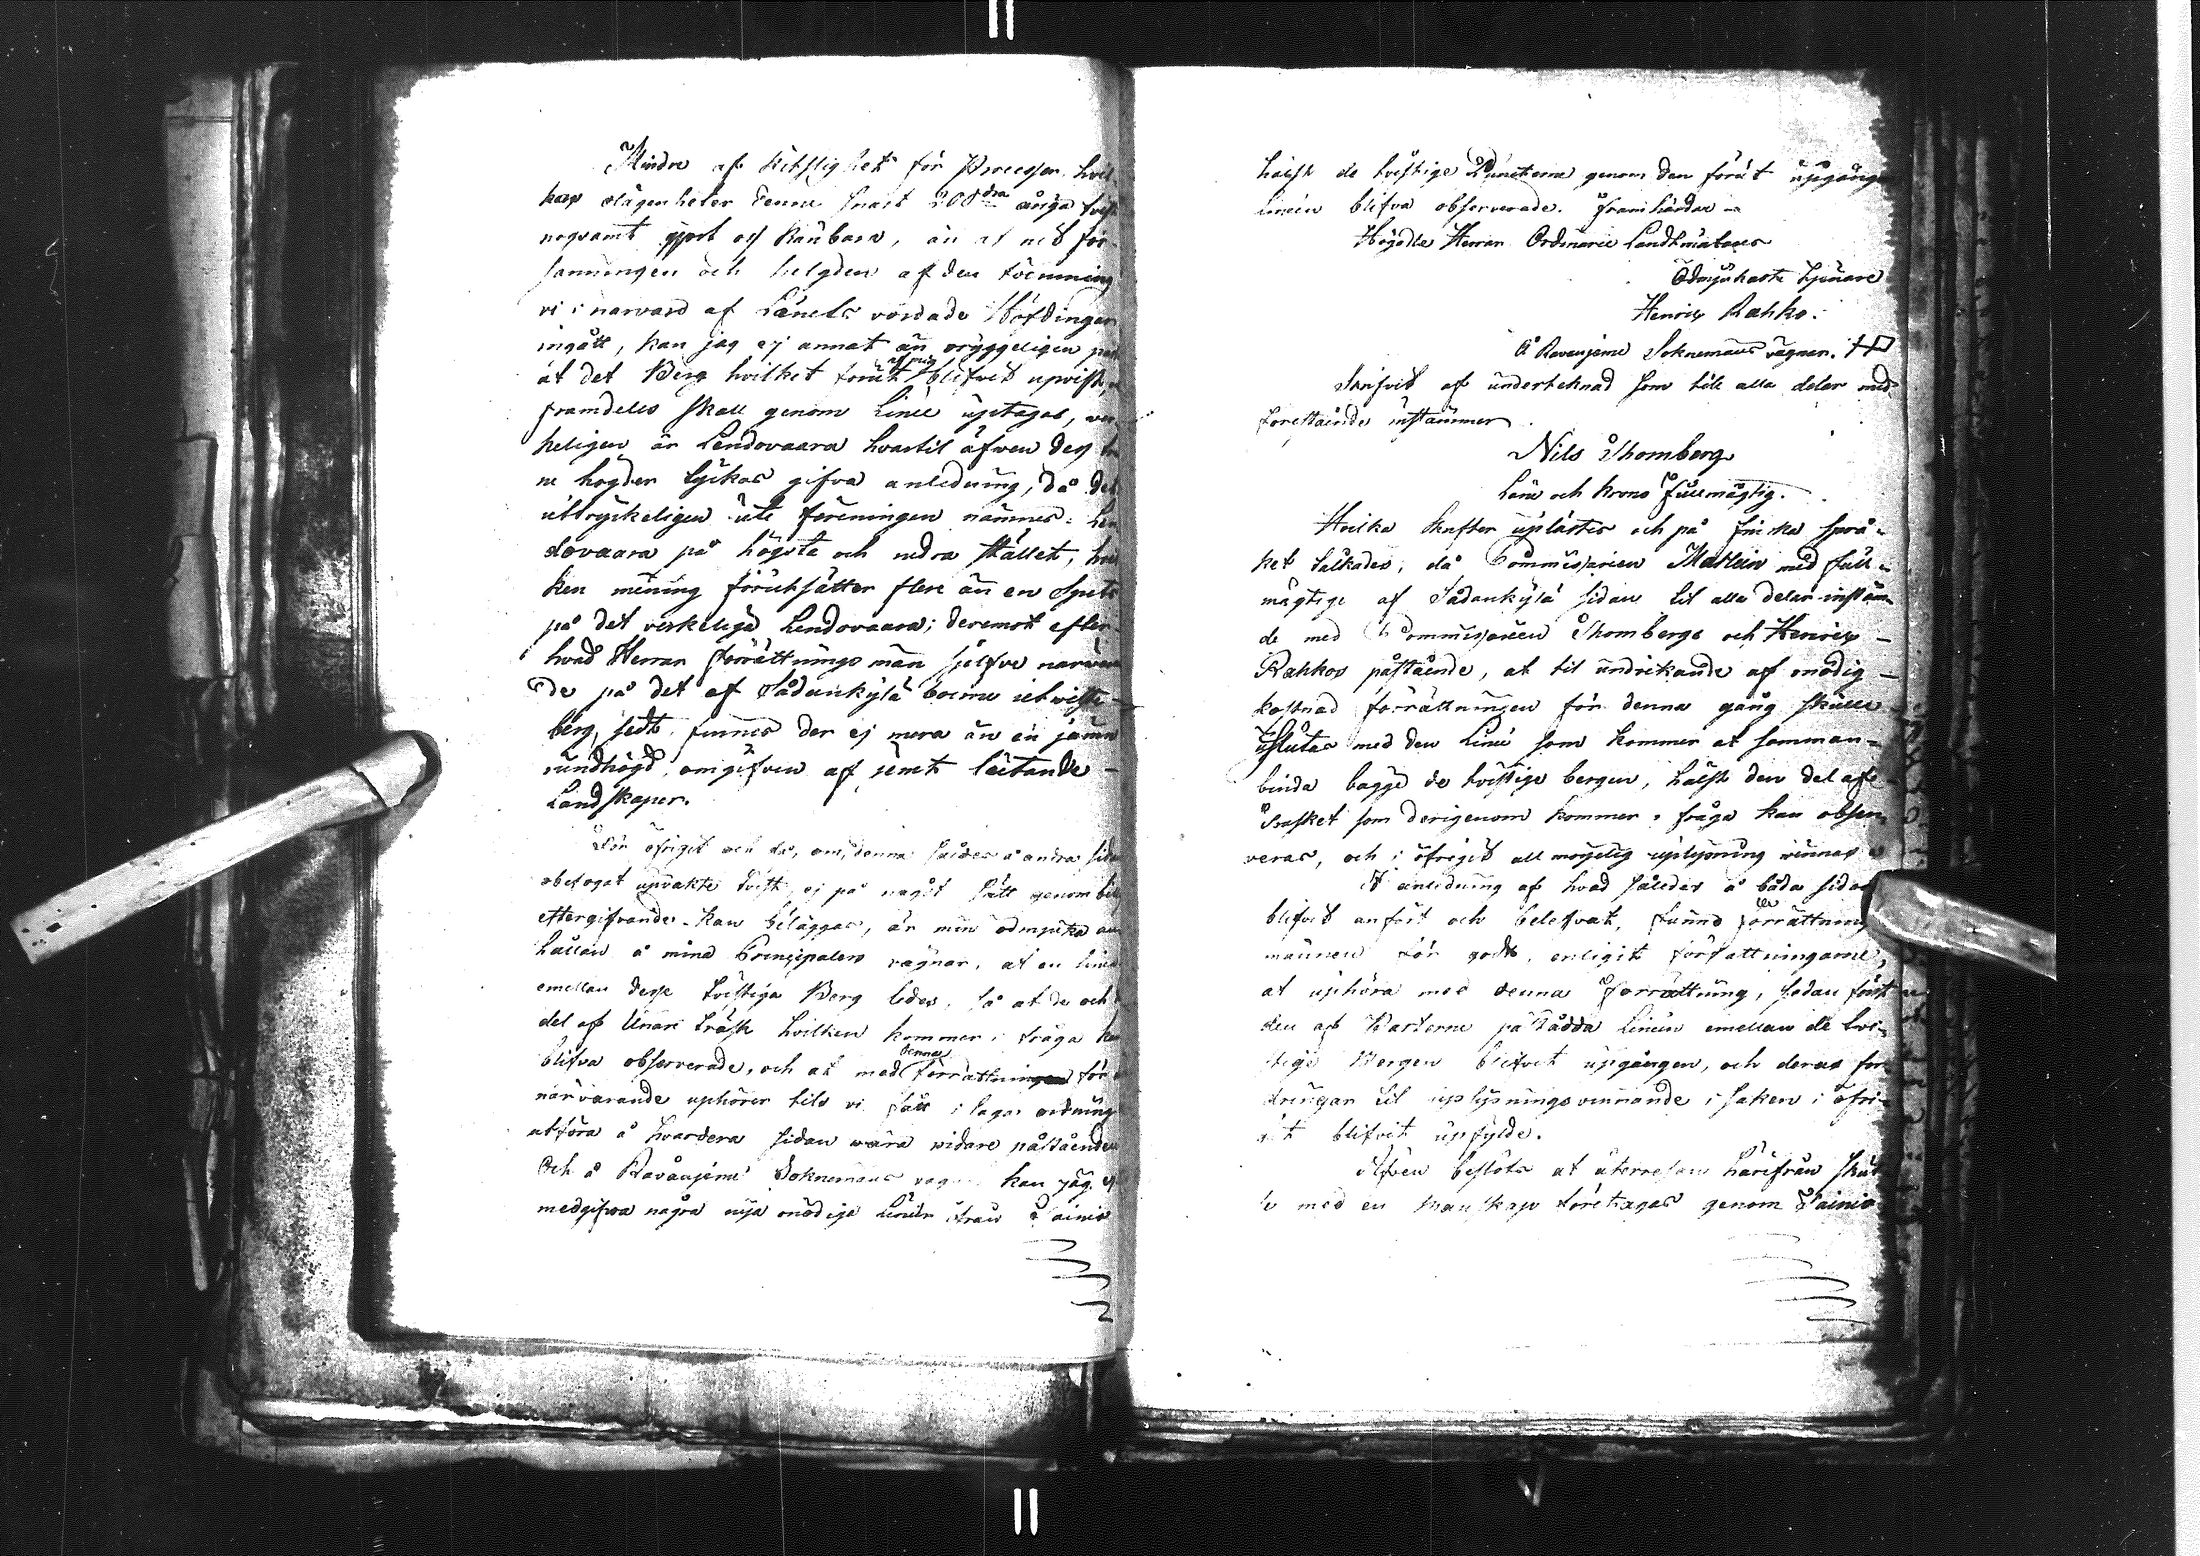 Mindre af hitslighet för Processer, hvil
kas olägenheter denna snart 200dra åriga tvist
nogsamt gjort oss kunbara, än at vid för
sanningen och helgden af den förening
vi i narvaro af Länets vördade Höfdingar
ingått, kan jag ej annat än oryggeligen på
åt det Berg hvilket förut af mig blifvit upvist,
framdeles skall genom Linie uptagas, ver
keligen är Lendovaara hvartil äfven dess
ne hogder tyckas gifva anledning, då det
uttryckeligen uti föreningen nämnes: Len
dovaara på högsta och södra stället, hvil
ken mening förutsätter flere än en Spets
på det verkeliga Lendovaara; deremot efter
hvad Herrar Förrättnings män sjelfve narvaran
de på det af Sådankylä boerne utviste
berg, sedt, finnes der ej mera än en jämn
rundhögd, omgifven af jemt lutande
Landskaper.
För öfrigit och då, om denna således å andra sidan
obefogat upväkte tvist, ej på något sätt genom
eftergifvande kan biläggas, är min ödmjuka an
hållan å mina Principalers vägnar, at en linie
emellan desse tvistiga Berg ledes, så at de och
del af Unari träsk hvilken kommer i fråga
blifva observerade, och at med denna förrättningen för
närvarande uphörer tils vi fått i laga ordning
utföra å hvardera sidan wåra widare påståenden
Och å Rovaniemi Soknemäns vägnar kan jag ej
medgifva några nya onödiga Linier ifrån Painio
hälst de tvistige Puncterne genom den förut upgångne
linien blifva observerade. Framhärdar
Högädle Herrar Ordinarie Landtmätares
Ödmjukaste tjenare
Henrik Rahko.
å Rovaniemi Soknemäns vägnar.
Skrifvit af underteknad som till alla delar med
förestående instämmer
Nils Thomberg
Läns och Krono fullmägtig.
Hvilka skrifter uplästes och på finska språ-
ket tålkades, då Commissarien Mathein med full-
mägtige af Sådankylä sidan til alla delar instäm-
de med Commissarien Thombergs och Henrik
Rahkos påstående, at til undvikande af onödig
kostnad förrättningen för denna gång skulle
slutas med den Linie som kommer at samman-
binda bägge de tvistige bergen, hälst den del af
träsket som derigenom kommer i fråga kan obser
veras, och i öfrigit all mögelig uplysning vinnas
I anledning af hvad således å båda sidor
blifvit anfört och beleswat, funno förrättnings
männen för godt, enligit författningarne,
at uphöra med denna Förrättning, sedan först
den af Parterne på rådda Linien emellan de tvi-
stige Bergen blifvit upgången, och deras for
dringar til uplysnings vinnande i saken i öfri-
git blifvit upfylde.
Äfven beslöts at återresan härifrån skul
le med en manskap företagas genom Painio